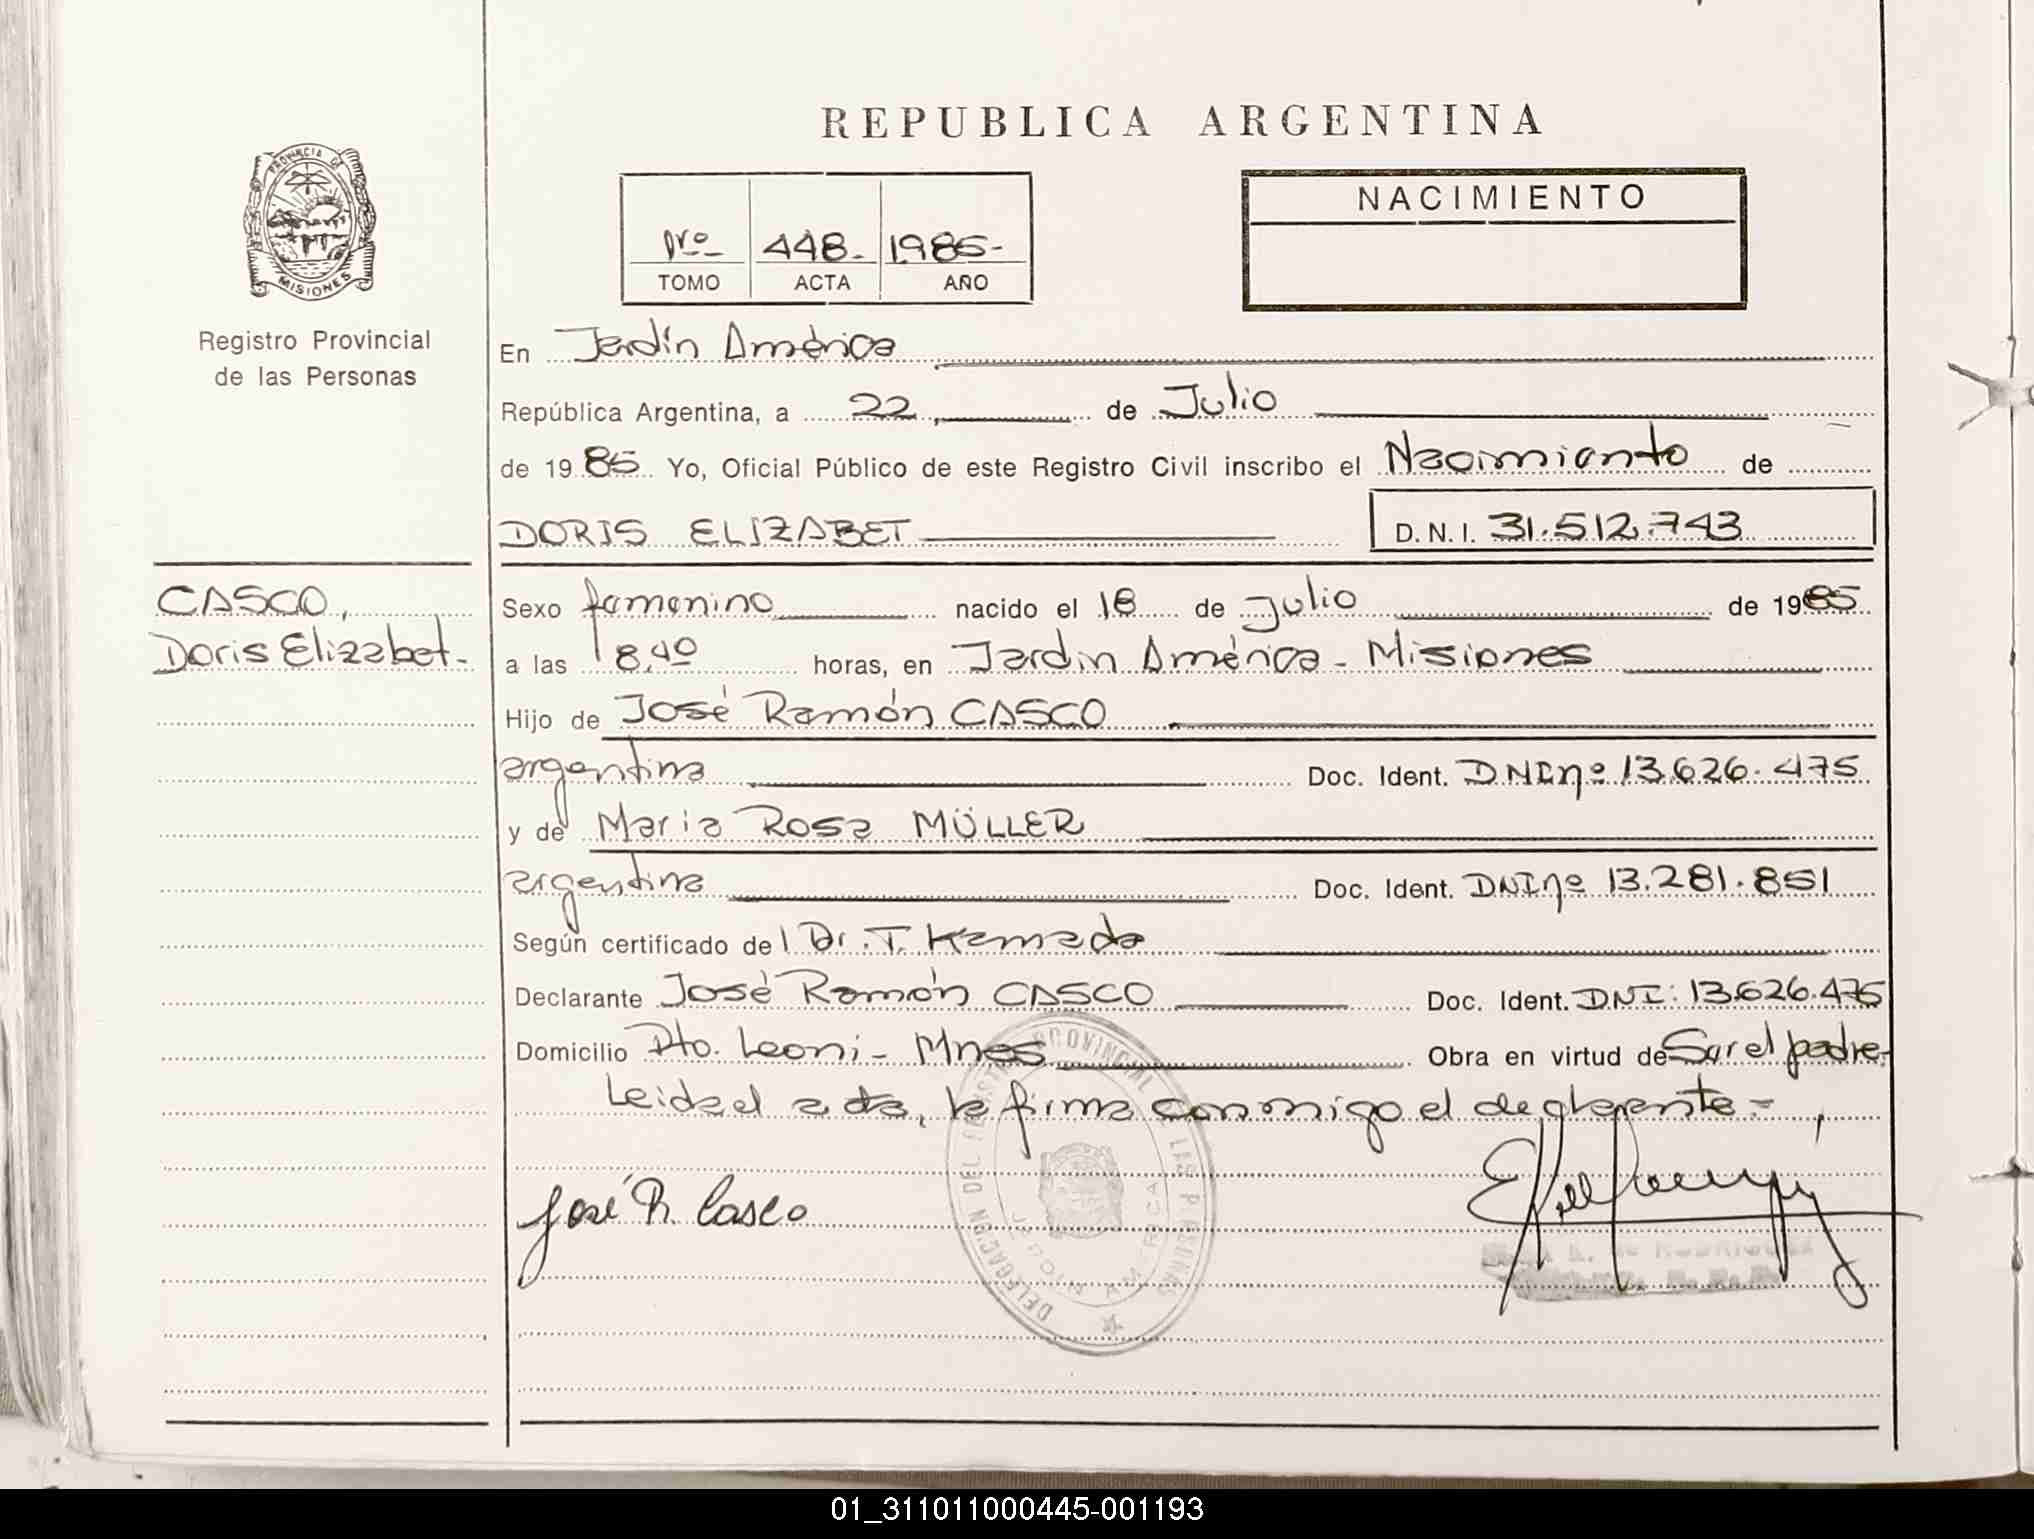 REPUBLICA ARGENTINA
PROVINCIA DE
MISIONES
Registro Provincial
de las Personas
1ro 448. 1985-
TOMO ACTA AÑO
NACIMIENTO
En Jardín América
República Argentina, a 22 de Julio
de 1985 Yo, Oficial Público de este Registro Civil inscribo el Nacimiento de
DORIS ELIZABET D.N.I. 31.512.743
CASCO,
Doris Elizabet.
Sexo femenino nacido el 18 de julio de 1985
a las 8,40 horas, en Jardín América - Misiones
Hijo de José Ramón CASCO
argentina Doc. Ident. DNI nº 13.626.475
y de Maria Rosa MÜLLER
argentina Doc. Ident. DNI nº 13.281.851
Según certificado del Dr. T. Kamada
Declarante José Ramón CASCO Doc. Ident. DNI: 13.626.475
Domicilio Pto. Leoni - Mnes Obra en virtud de Ser el padre.
Leida el acta, la firma conmigo el declarante -
José R. Casco
DELEGACION DEL REGISTRO PROVINCIAL DE LAS PERSONAS
JARDIN AMERICA
RODRIGUEZ
01_311011000445-001193